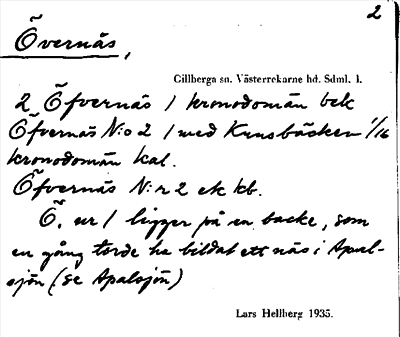 2
Övernäs,
Gillberga sn. Västerrekarne hd. Sdml. l.
2 Öfvernäs / kronodomän bek
Öfvernäs N:o 2 / med Kunsbäcken 1/16
kronodomän kal.
Öfvernäs N:r 2 ek kb.
Ö. nr / ligger på en backe, som
en gång torde ha bildat ett näs i Apal-
sjön (se Apalsjön)
Lars Hellberg 1935.